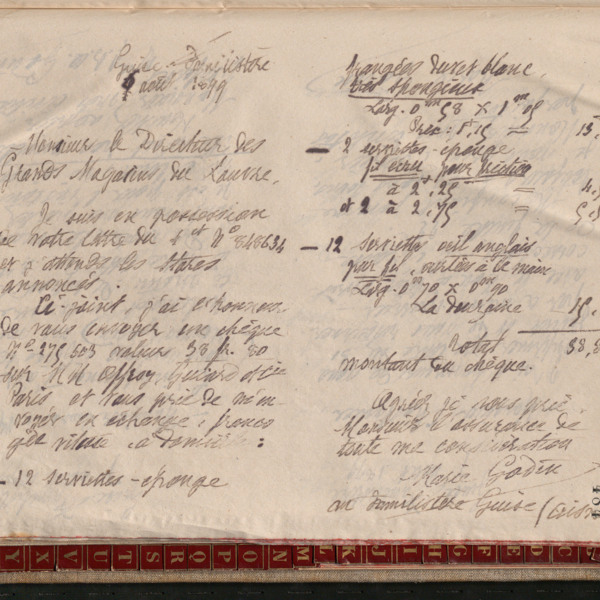 Guise - Familistère
août 1899
Monsieur le Directeur des
Grands Magasins du Louvre,
Je suis en possession
de votre lettre du 1er No 848634
et j'attends les stores
annoncés.
Ci-joint, j'ai
de vous envoyer, un chèque
No 275603 valeur 38 fr. 80
sur M M Offroy, Guiard et Cie
Paris et vous prie de m'en-
voyer en échange, franco
à domicile :
- 12 serviettes-éponge
frangées duvet blanc,
très spongieux
Larg. 0m 58 x 1m 05
Prix : 1f,25 =
- 2 serviettes-éponge
fil écru pour friction
à 2,25 =
et 2 à 2,75 =
- 12 serviettes œil anglais
pur fil, ourlées à la main
Larg. 0m 70 x 0m 90
La douzaine
Total 38,
montant du chèque.
Agréez, je vous prie,
Monsieur l'assurance de
toute ma considération
Marie Godin
au familistère Guise (Aisne
X V U T S R Q P O N M L K J I H G F E D C